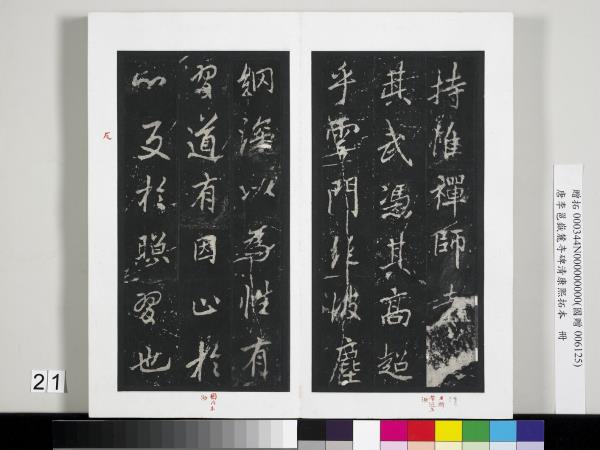 持惟禪師者
其武憑其高超
乎雲門絕彼塵
網以為性有
習道有因止於
心反於瞑習也
反
21
贈拓 000344N000000000(國贈 006125)
唐李邕嶽麓寺碑清康熙拓本 冊